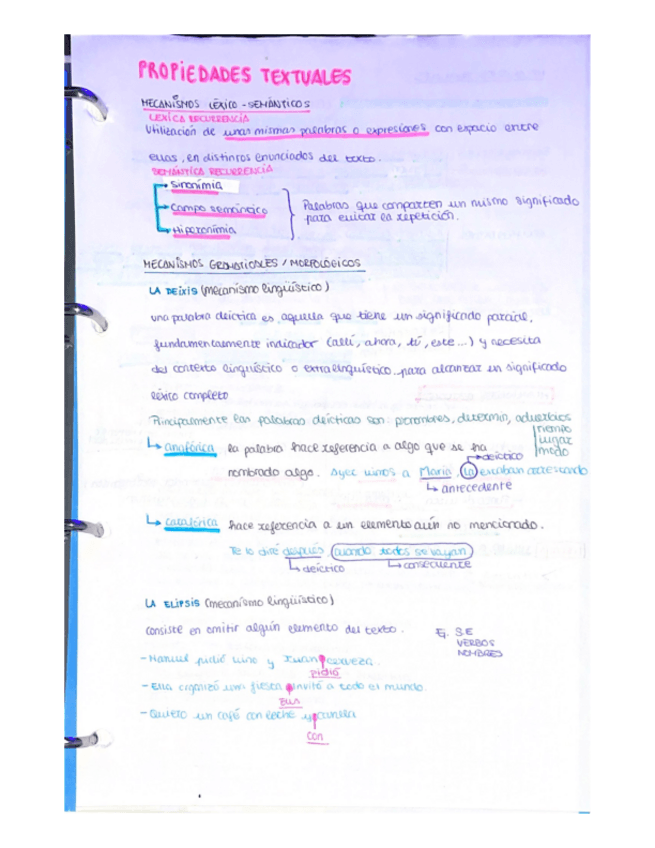 PROPIEDADES TEXTUALES
MECANISMOS LÉXICO-SEMÁNTICOS
LÉXICA RECURRENCIA
Utilización de unas mismas palabras o expresiones con espacio entre
ellas, en distintos enunciados del texto.
SEMÁNTICA RECURRENCIA
Sinonímia
Campo semántico
Hiperonímia
Palabras que comparten un mismo significado
para evitar la repetición.
MECANISMOS GRAMATICALES / MORFOLÓGICOS
LA DEÍXIS (mecanismo lingüístico)
una palabra deíctica es aquella que tiene un significado parcial,
fundamentalmente indicador (allí, ahora, tú, este...) y necesita
del contexto lingüístico o extralingüístico para alcanzar un significado
léxico completo
Principalmente las palabras deícticas son: pronombres, determin, adverbios
tiempo
lugar
modo
anafórica la palabra hace referencia a algo que se ha
deíctico
nombrado algo. Ayer vimos a María, la estaban atracando
antecedente
catafórica hace referencia a un elemento aún no mencionado.
Te lo diré después (cuando todos se vayan)
deíctico consecuente
LA ELIPSIS (mecanismo lingüístico)
consiste en omitir algún elemento del texto.
Ej. S.E
VERBOS
NOMBRES
- Manuel pidió vino y Juan cerveza.
pidió
- Ella organizó una fiesta invitó a todo el mundo.
- Quiero un café con leche y canela
con